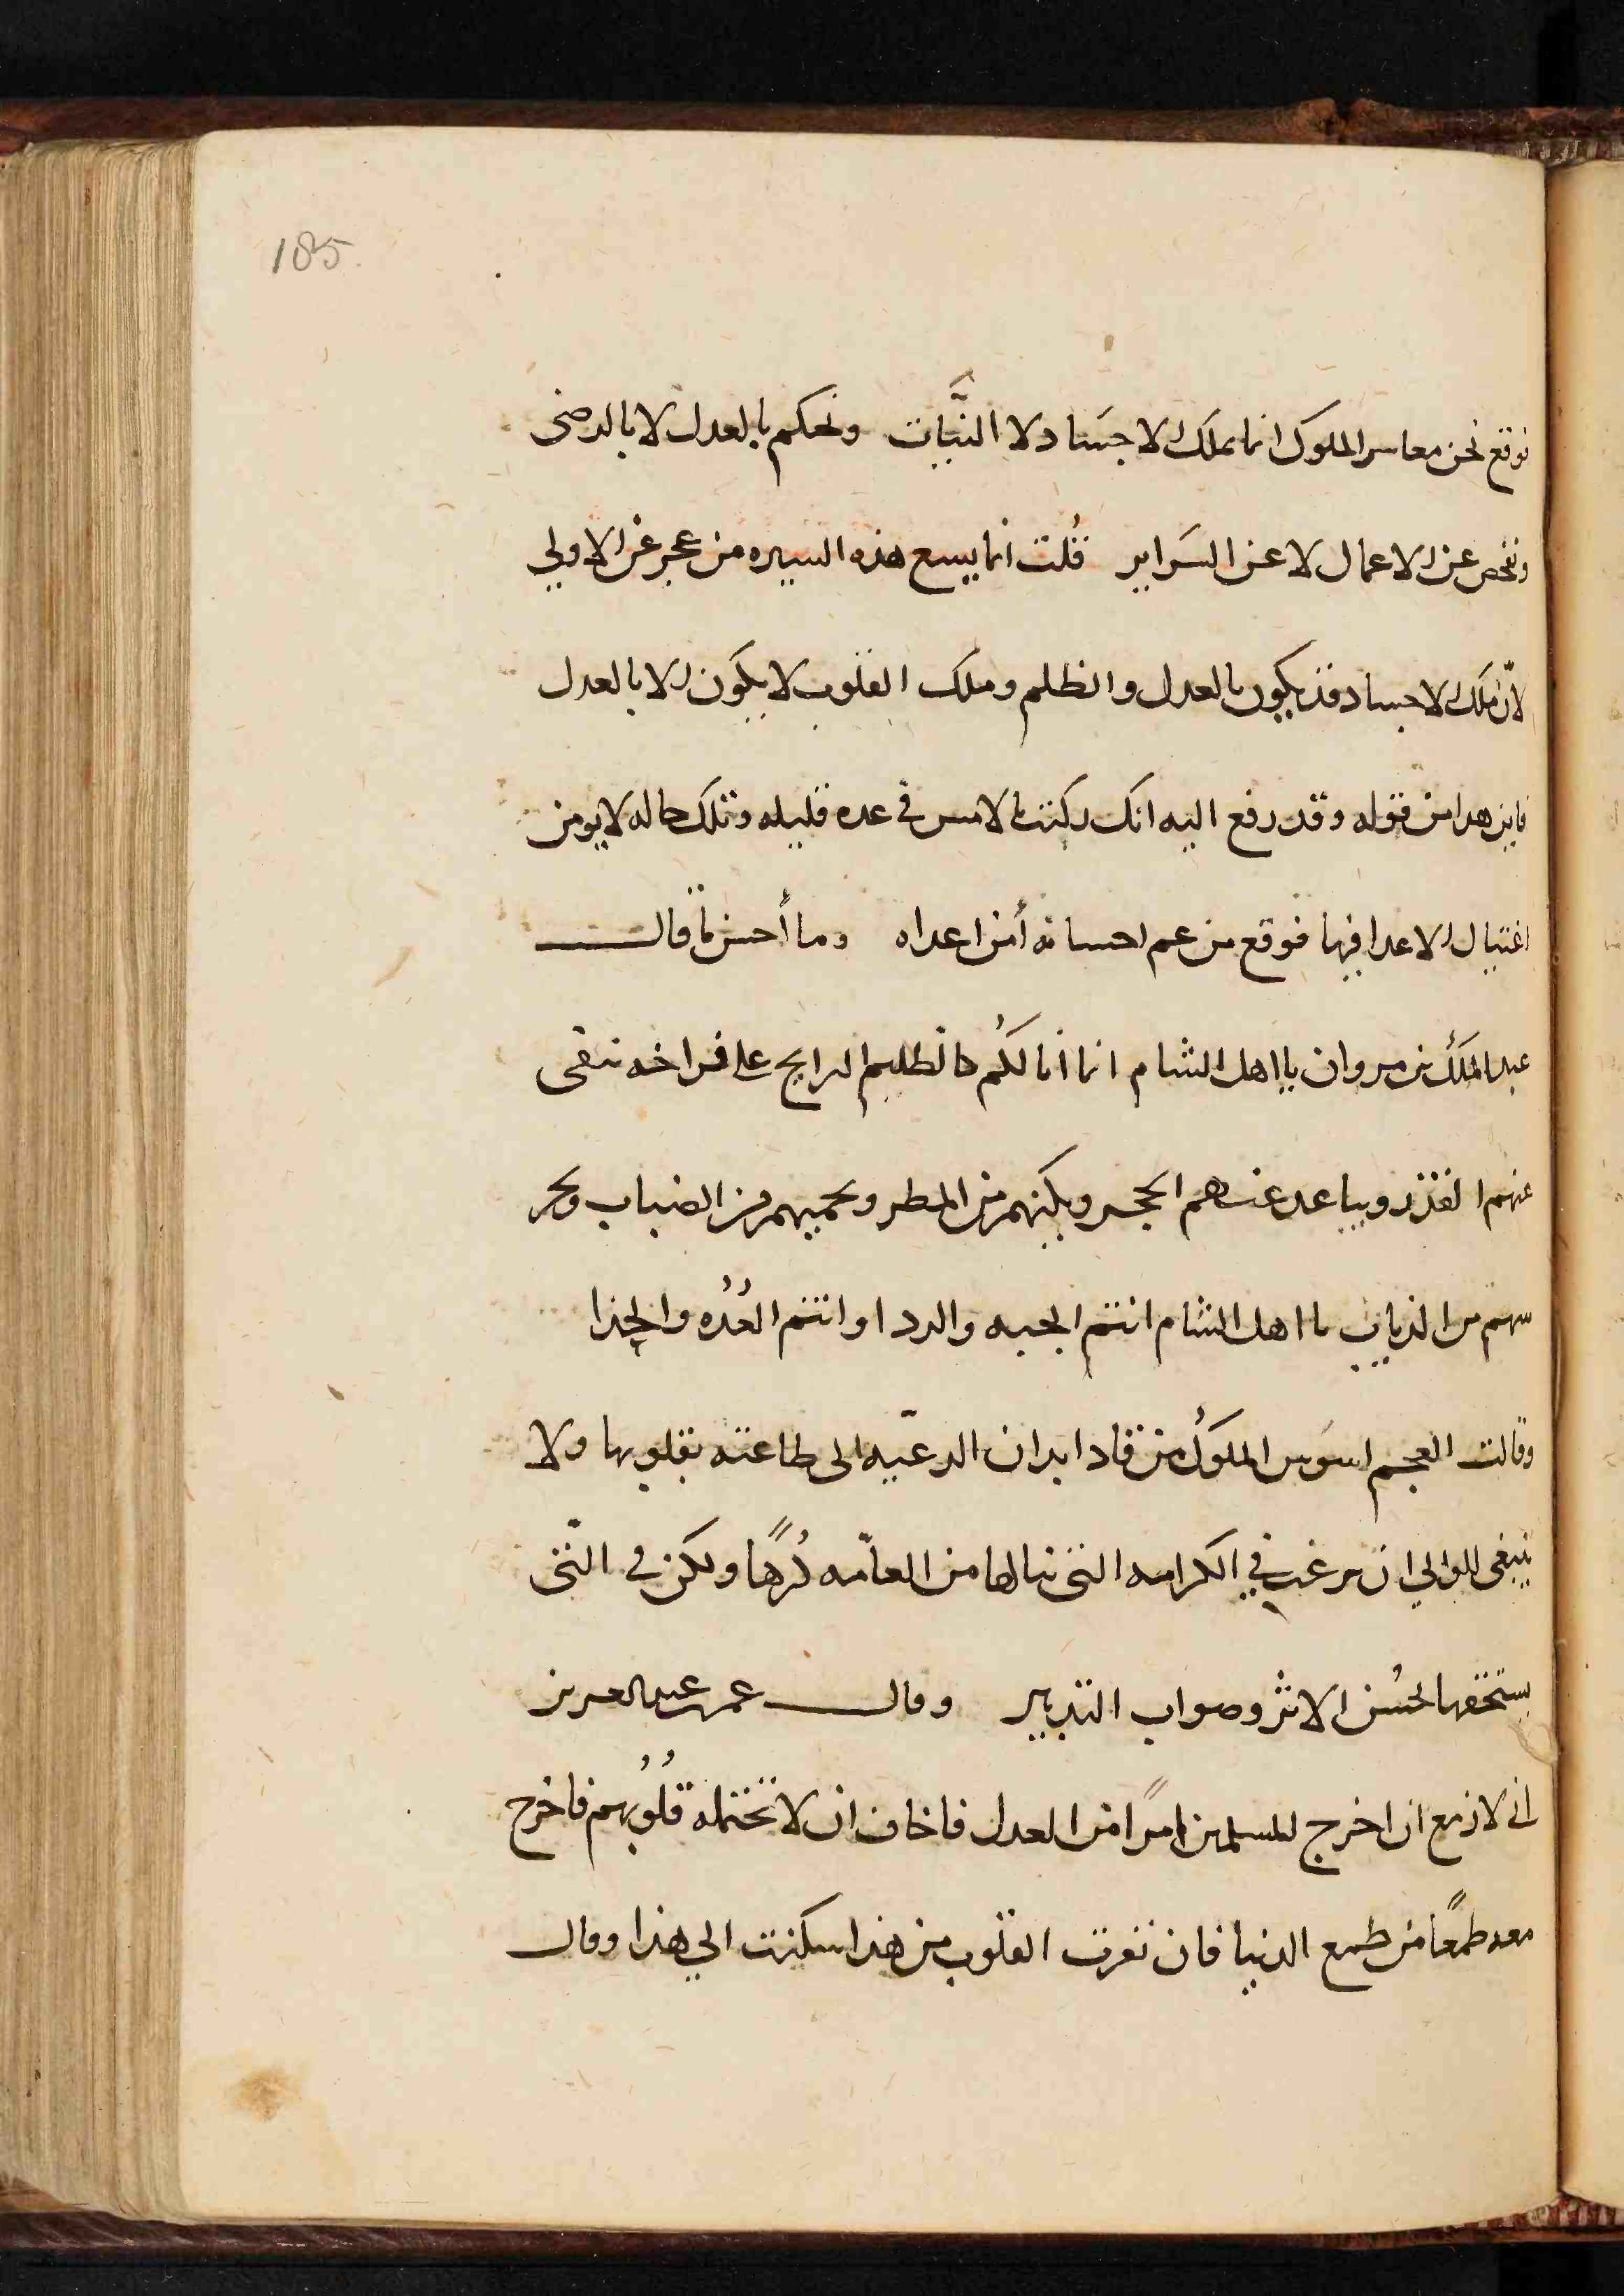 185
فوقع نحن معاسر الملوك انما نملك الاجسَاد لا النيَّات ونحكم بالعدل لا بالرضى
ونفحص عن الاعمال لا عن السَراير قُلت انما يسع هذه السيره من عجز عن الاولي
لانّ ملك الاجساد قد يكون بالعدل والظلم وملك القلوب لا يكون الا بالعدل
فاين هدا من قوله وقد رفع اليه انك ركبت بالامس في عده قليله وتلك حاله لا يومن
اغتيال الاعدا فيها فوقع من عم احسانه أمن اعداه وما أحسن ما قال
عبد الملك بن مروان يا اهل الشام انما انا لكُم كالظليم الرايح على فراخه ينفى
عنهم القذر ويباعد عنهم الحجر ويكنهم من المطر ويحميهم من الضباب ويحر
سهم من الذياب يا اهل الشام انتم الجبه والردا وانتم العُدُه والحذا
وقالت العجم اسوَس الملوك من قاد ابدان الرعيّه الى طاعته بقلوبها ولا
ينبغي للوالي ان يرغب في الكرامه التى ينالها من العامّه كُرهًا ولكن في التى
يستحقها بحُسن الاثر وصواب التدبير وقال عمر بن عبد العزيز
اني لازمع ان اخرج للمسلمين امرًا من العدل فاخاف ان لا تحتمله قلُوبُهم فاخرج
معه طمعًا من طمع الدنيا فان نفرت القلوب من هذا سكنت الي هذا وقال